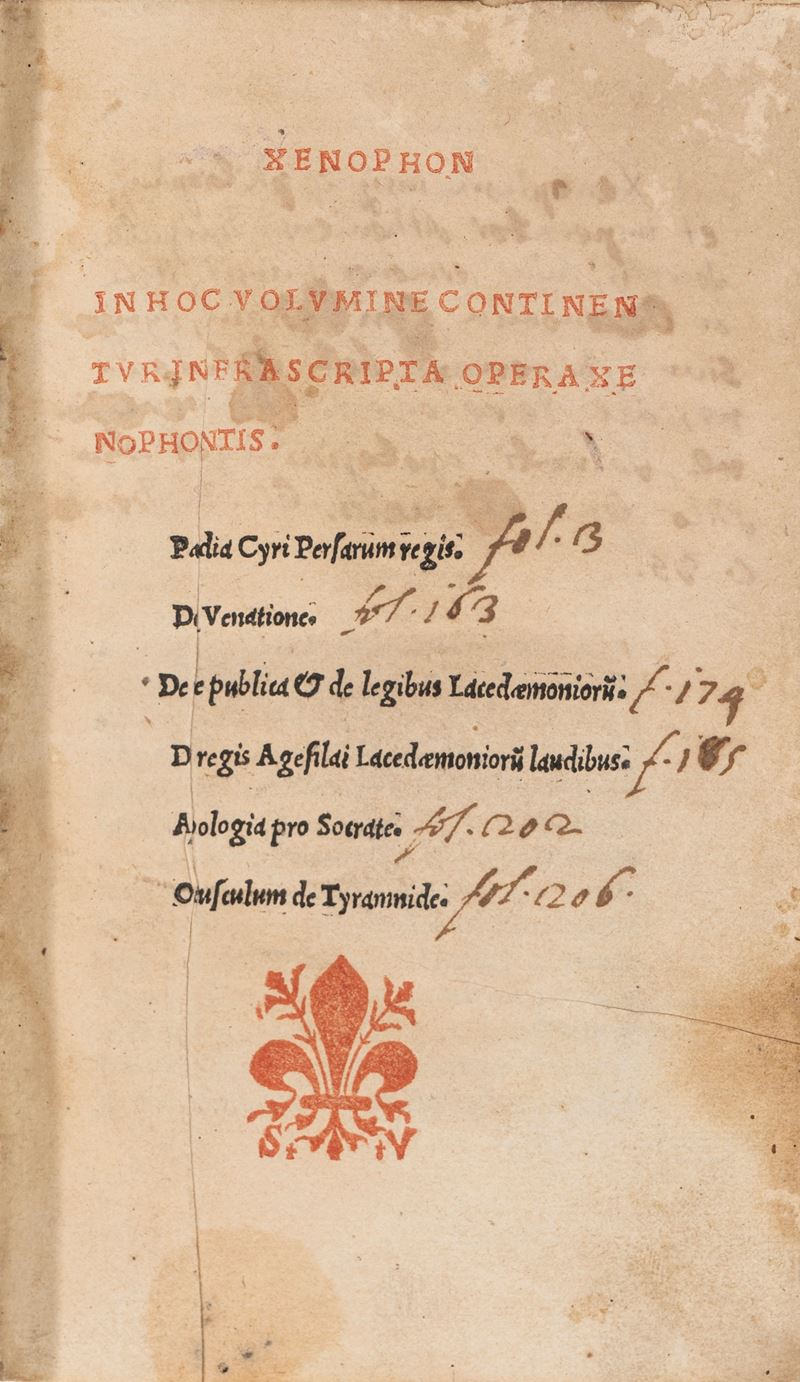 XENOPHON
IN HOC VOLVMINE CONTINEN
TVR INFRASCRIPTA OPERA XE
NOPHONTIS.
Pædia Cyri Persarum regis. fol. 13
D Venatione. fol. 163
De e publica & de legibus Lacedæmoniorū. f. 174
D regis Agesilai Lacedæmoniorū laudibus. f. 185
Apologia pro Socrate. fol. 202
Opusculum de Tyrannide. fol. 206.
S V